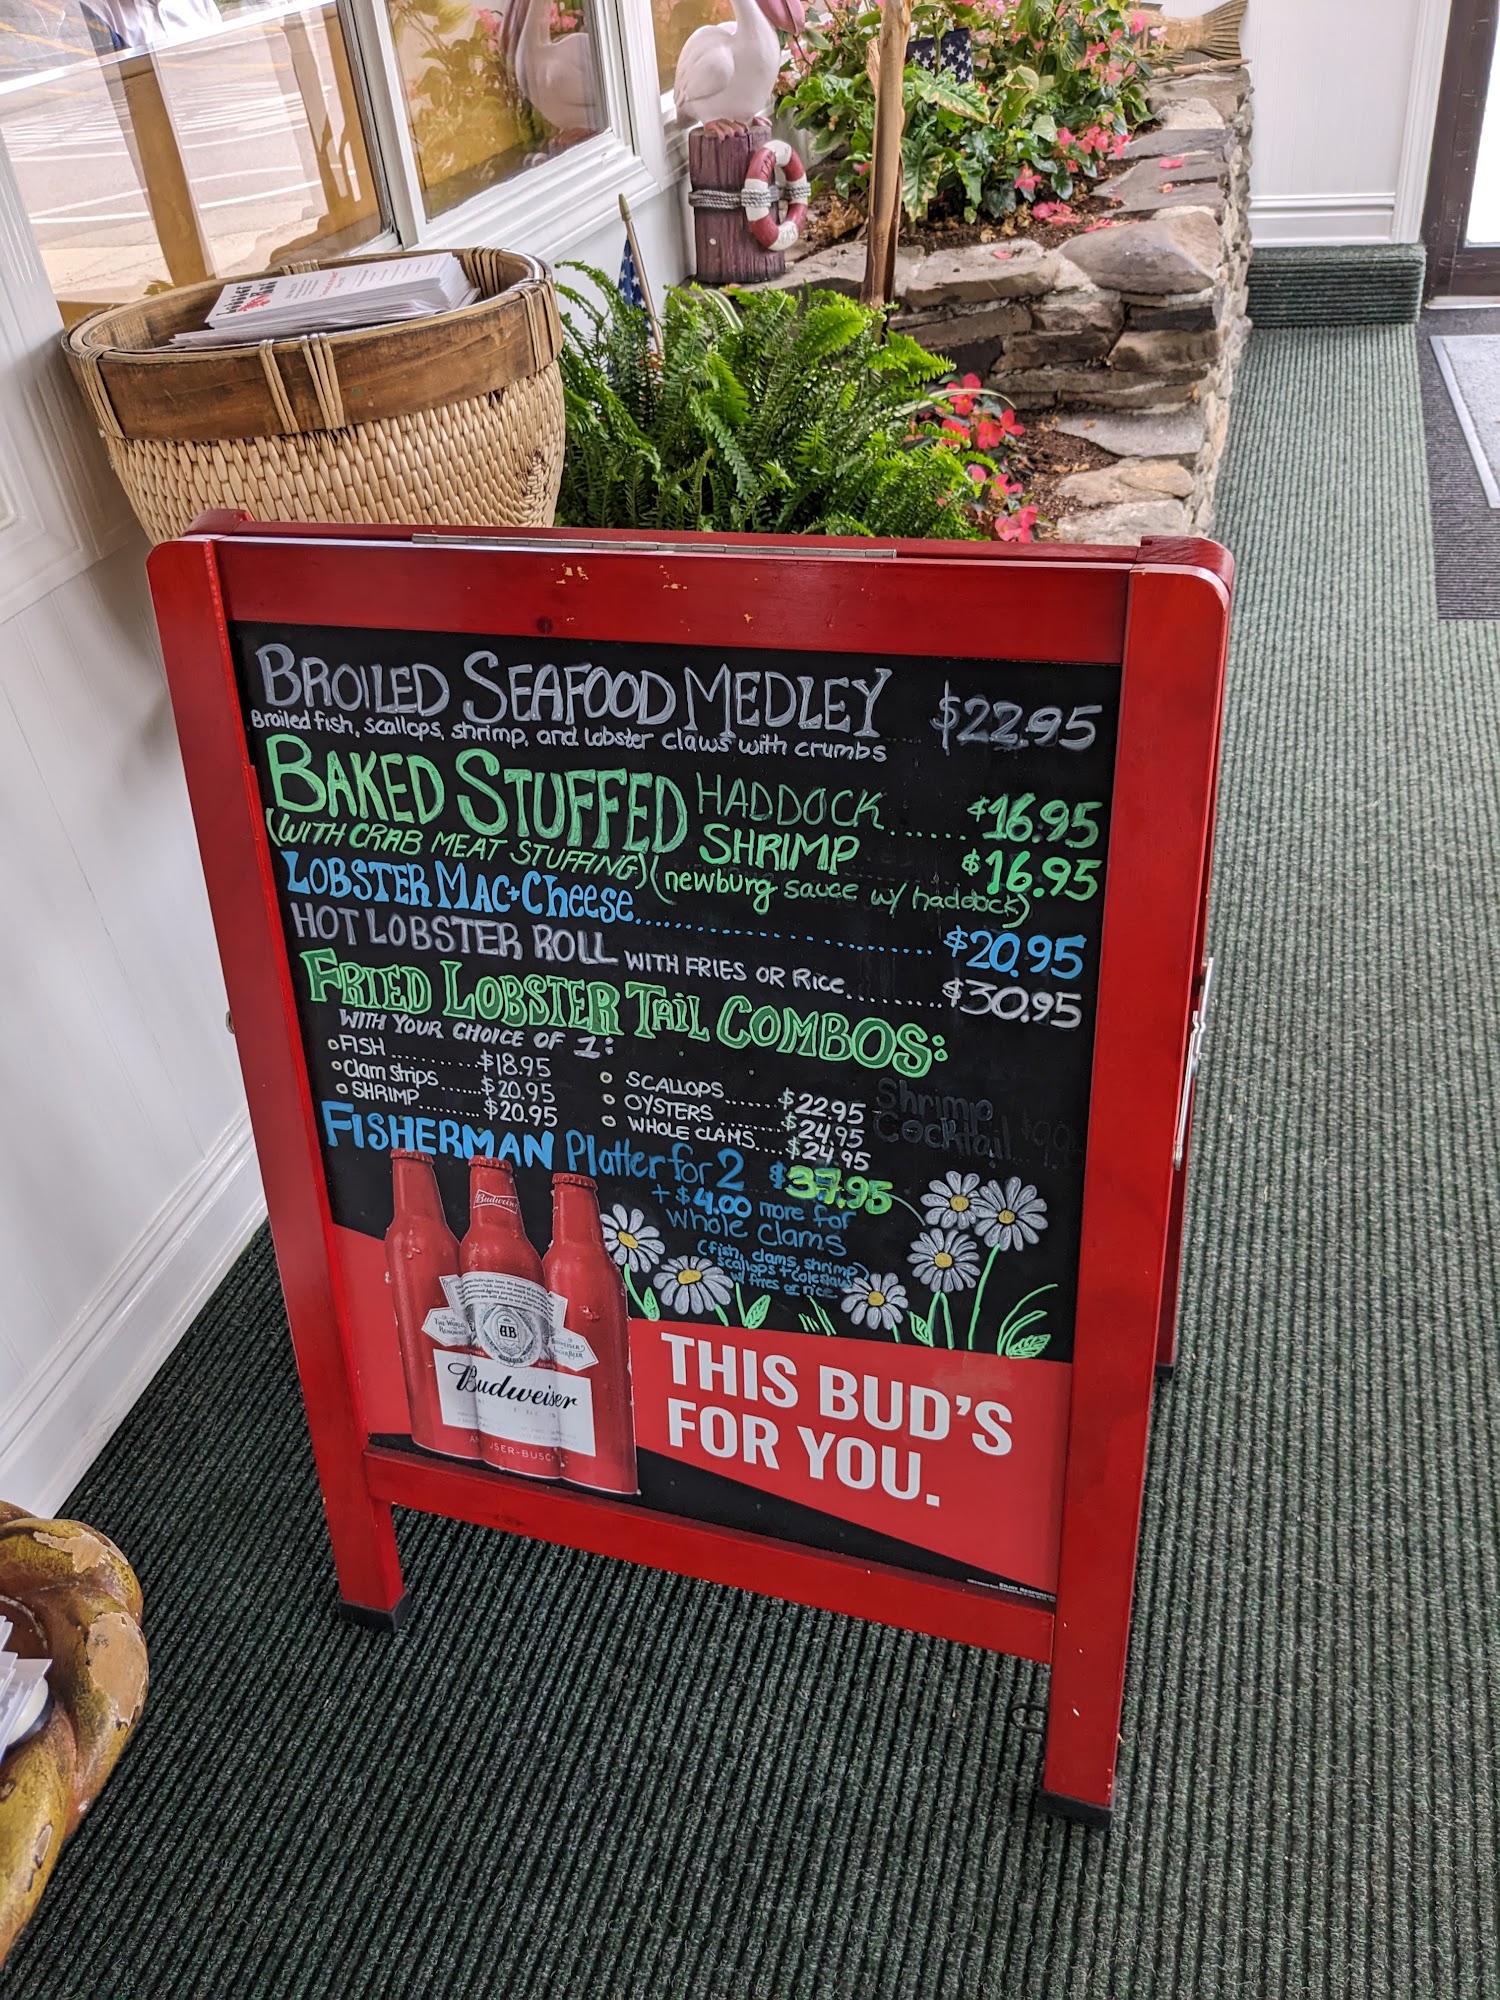 Lobster
BROILED SEAFOOD MEDLEY $22.95
Broiled fish, scallops, shrimp, and lobster claws with crumbs
BAKED STUFFED HADDOCK....... $16.95
SHRIMP $16.95
(WITH CRAB MEAT STUFFING) (newburg sauce w/ haddock)
LOBSTER MAC+CHEESE............................ $20.95
HOT LOBSTER ROLL WITH FRIES OR RICE.......... $30.95
FRIED LOBSTER TAIL COMBOS:
WITH YOUR CHOICE OF 1:
FISH ........... $18.95
Clam Strips...... $20.95
SHRIMP ......... $20.95
SCALLOPS....... $22.95
OYSTERS ....... $24.95
WHOLE CLAMS.... $24.95
Shrimp
Cocktail
FISHERMAN Platter for 2 $37.95
+ $4.00 more for
whole clams
(fish, clams, shrimp,
scallops + coleslaw
w/ fries or rice
Budweiser
AB
Budweiser
THIS BUD'S
FOR YOU.